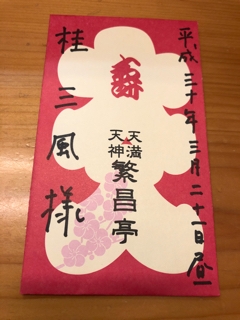 平成三十年三月二十一日昼
天満
天神
繁昌亭
桂三風様